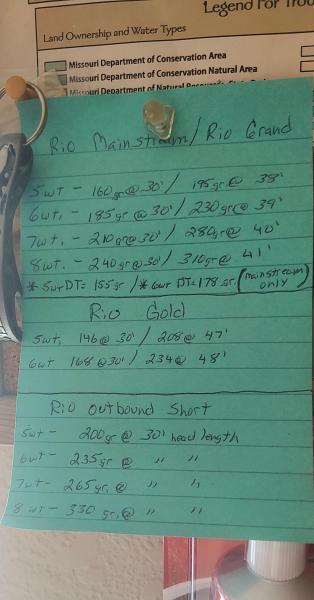 Legend For Trou
Land Ownership and Water Types
Missouri Department of Conservation Area
Missouri Department of Conservation Natural Area
Missouri Department of Natural
Rio Mainstream/Rio Grand
5wt - 160gr@30'/ 195gr@ 38'
6wt. - 185gr@30'/230gr@ 39'
7wt. - 210gr@30'/ 280gr@ 40'
8wt. - 240gr@30'/310gr@ 41'
* 5wtDT= 155gr/* 6wt DT=178gr. (mainstream only)
Rio Gold
5wt. 146@30'/ 208@47'
6wt 168@30'/ 234@48'
Rio Outbound Short
5wt - 200gr@ 30' head length
6wt - 235gr@ " "
7wt - 265gr.@ " "
8wt - 330 gr.@ " "